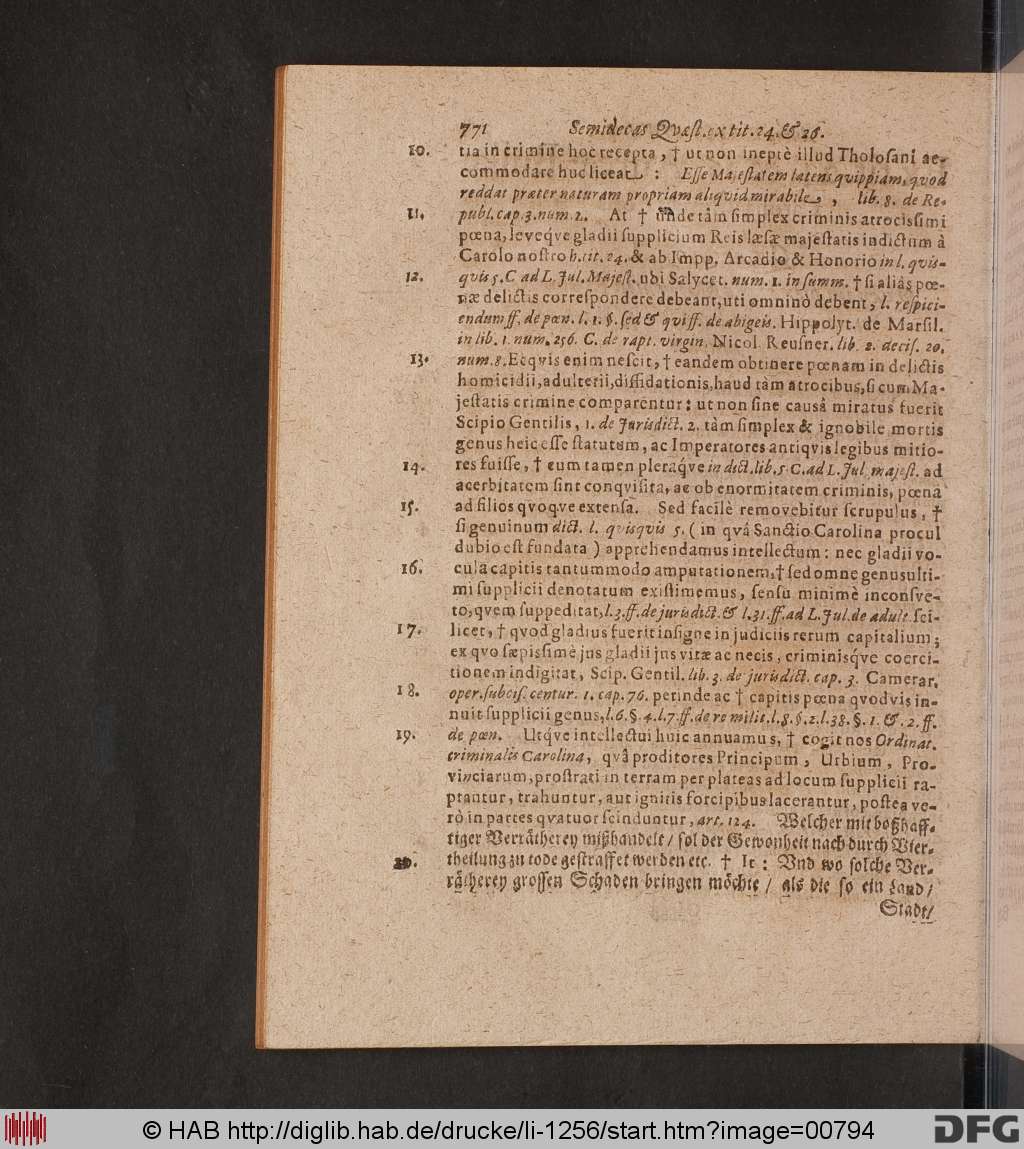 771 Semidecas Qvæst. ex tit. 24. & 26.
10. tia in crimine hoc recepta, † ut non ineptè illud Tholosani ac-
commodare huc liceat : Esse Majestatem latens quippiam, quod
reddat præter naturam propriam aliquid mirabile, lib. 8. de Re-
11. publ. cap. 3. num. 2. At † unde tàm simplex criminis atrocissimi
pœna, leveqve gladii supplicium Reis læsæ majestatis indictum à
Carolo nostro h. tit. 24. & ab Impp. Arcadio & Honorio in l. qvis-
12. qvis 5. C ad L. Jul. Majest. ubi Salycet. num. 1. in summ. † si aliàs pœ-
næ delictis correspondere debeant, uti omninò debent, l. respici-
endum ff. de pœn. l. 1. §. sed & qvi ff. de abigeis. Hippolyt. de Marsil.
in lib. 1. num. 256. C. de rapt. virgin. Nicol. Reusner. lib. 2. decis. 20.
13. num. 8. Ecqvis enim nescit, † eandem obtinere pœnam in delictis
homicidii, adulterii, diffidationis, haud tàm atrocibus, si cum Ma-
jestatis crimine comparentur: ut non sine causâ miratus fuerit
Scipio Gentilis, 1. de Jurisdict. 2. tàm simplex & ignobile mortis
genus heic esse statutum, ac Imperatores antiqvis legibus mitio-
14. res fuisse, † cum tamen pleraq́ve in dict. lib. 5 C. ad L. Jul majest. ad
acerbitatem sint conqvisita, ac ob enormitatem criminis, pœnâ
15. ad filios qvoqve extensa. Sed facilè removebitur scrupulus, †
si genuinum dict. l. quisquis 5. ( in qvâ Sanctio Carolina procul
dubio est fundata ) apprehendamus intellectum: nec gladii vo-
16. cula capitis tantummodo amputationem, † sed omne genus ulti-
mi supplicii denotatum existimemus, sensu minimè inconsve-
to, qvem suppeditat, l. 3. ff. de jurisdict. & l. 31. ff. ad L. Jul. de adult. sci-
17. licet, † qvod gladius fuerit insigne in judiciis rerum capitalium;
ex qvo sæpissimè jus gladii jus vitæ ac necis, criminisq́ve coerci-
tionem indigitat, Scip. Gentil. lib. 3. de jurisdict. cap. 3. Camerar.
18. oper. subcis. centur. 1. cap. 76. perinde ac † capitis pœna qvodvis in-
nuit supplicii genus, l. 6. §. 4. l. 7. ff. de re milit. l. 8. §. 2. l. 38. §. 1. &. 2. ff.
19. de pœn. Utq́ve intellectui huic annuamus, † cogit nos Ordinat.
criminalis Carolina, qvâ proditores Principum, Urbium, Pro-
vinciarum, prostrati in terram per plateas ad locum supplicii ra-
ptantur, trahuntur, aut ignitis forcipibus lacerantur, postea ve-
rò in partes qvatuor scinduntur, art. 124. Welcher mit boßhaff-
tiger Verrätherey mißhandelt / sol der Gewonheit nach durch Vier-
20. theilung zu tode gestraffet werden etc. † It : Und wo solche Ver-
rätherey grossen Schaden bringen möchte / als die so ein Land /
Stadt/
© HAB http://diglib.hab.de/drucke/li-1256/start.htm?image=00794
DFG